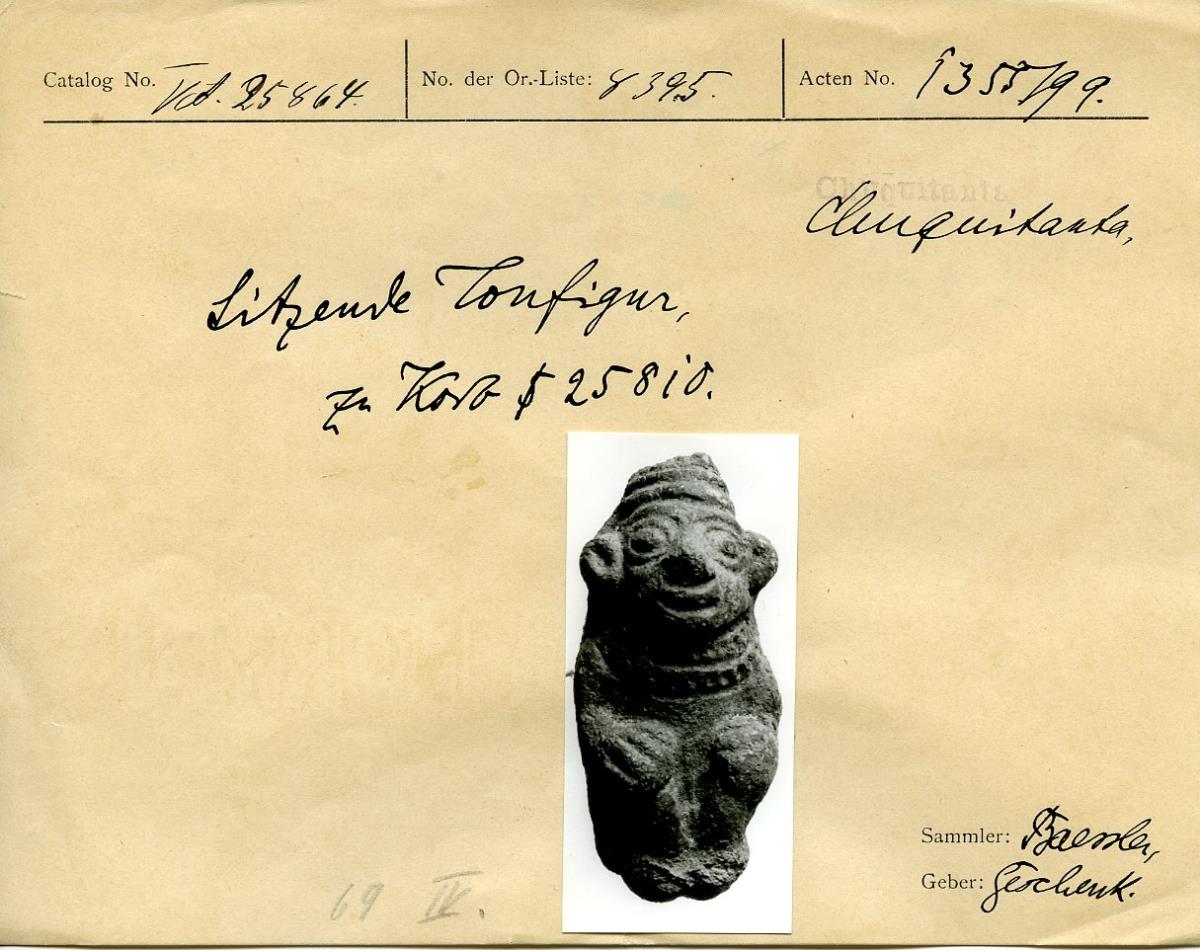 Catalog No. VA. 25864. No. der Or.-Liste: 8395. Acten No. 1355/99.
Chuquitanta
Chuquitanta,
Sitzende Tonfigur,
zu Korb 25810.
Sammler: Baessler,
Geber: Geschenk.
69 IV.